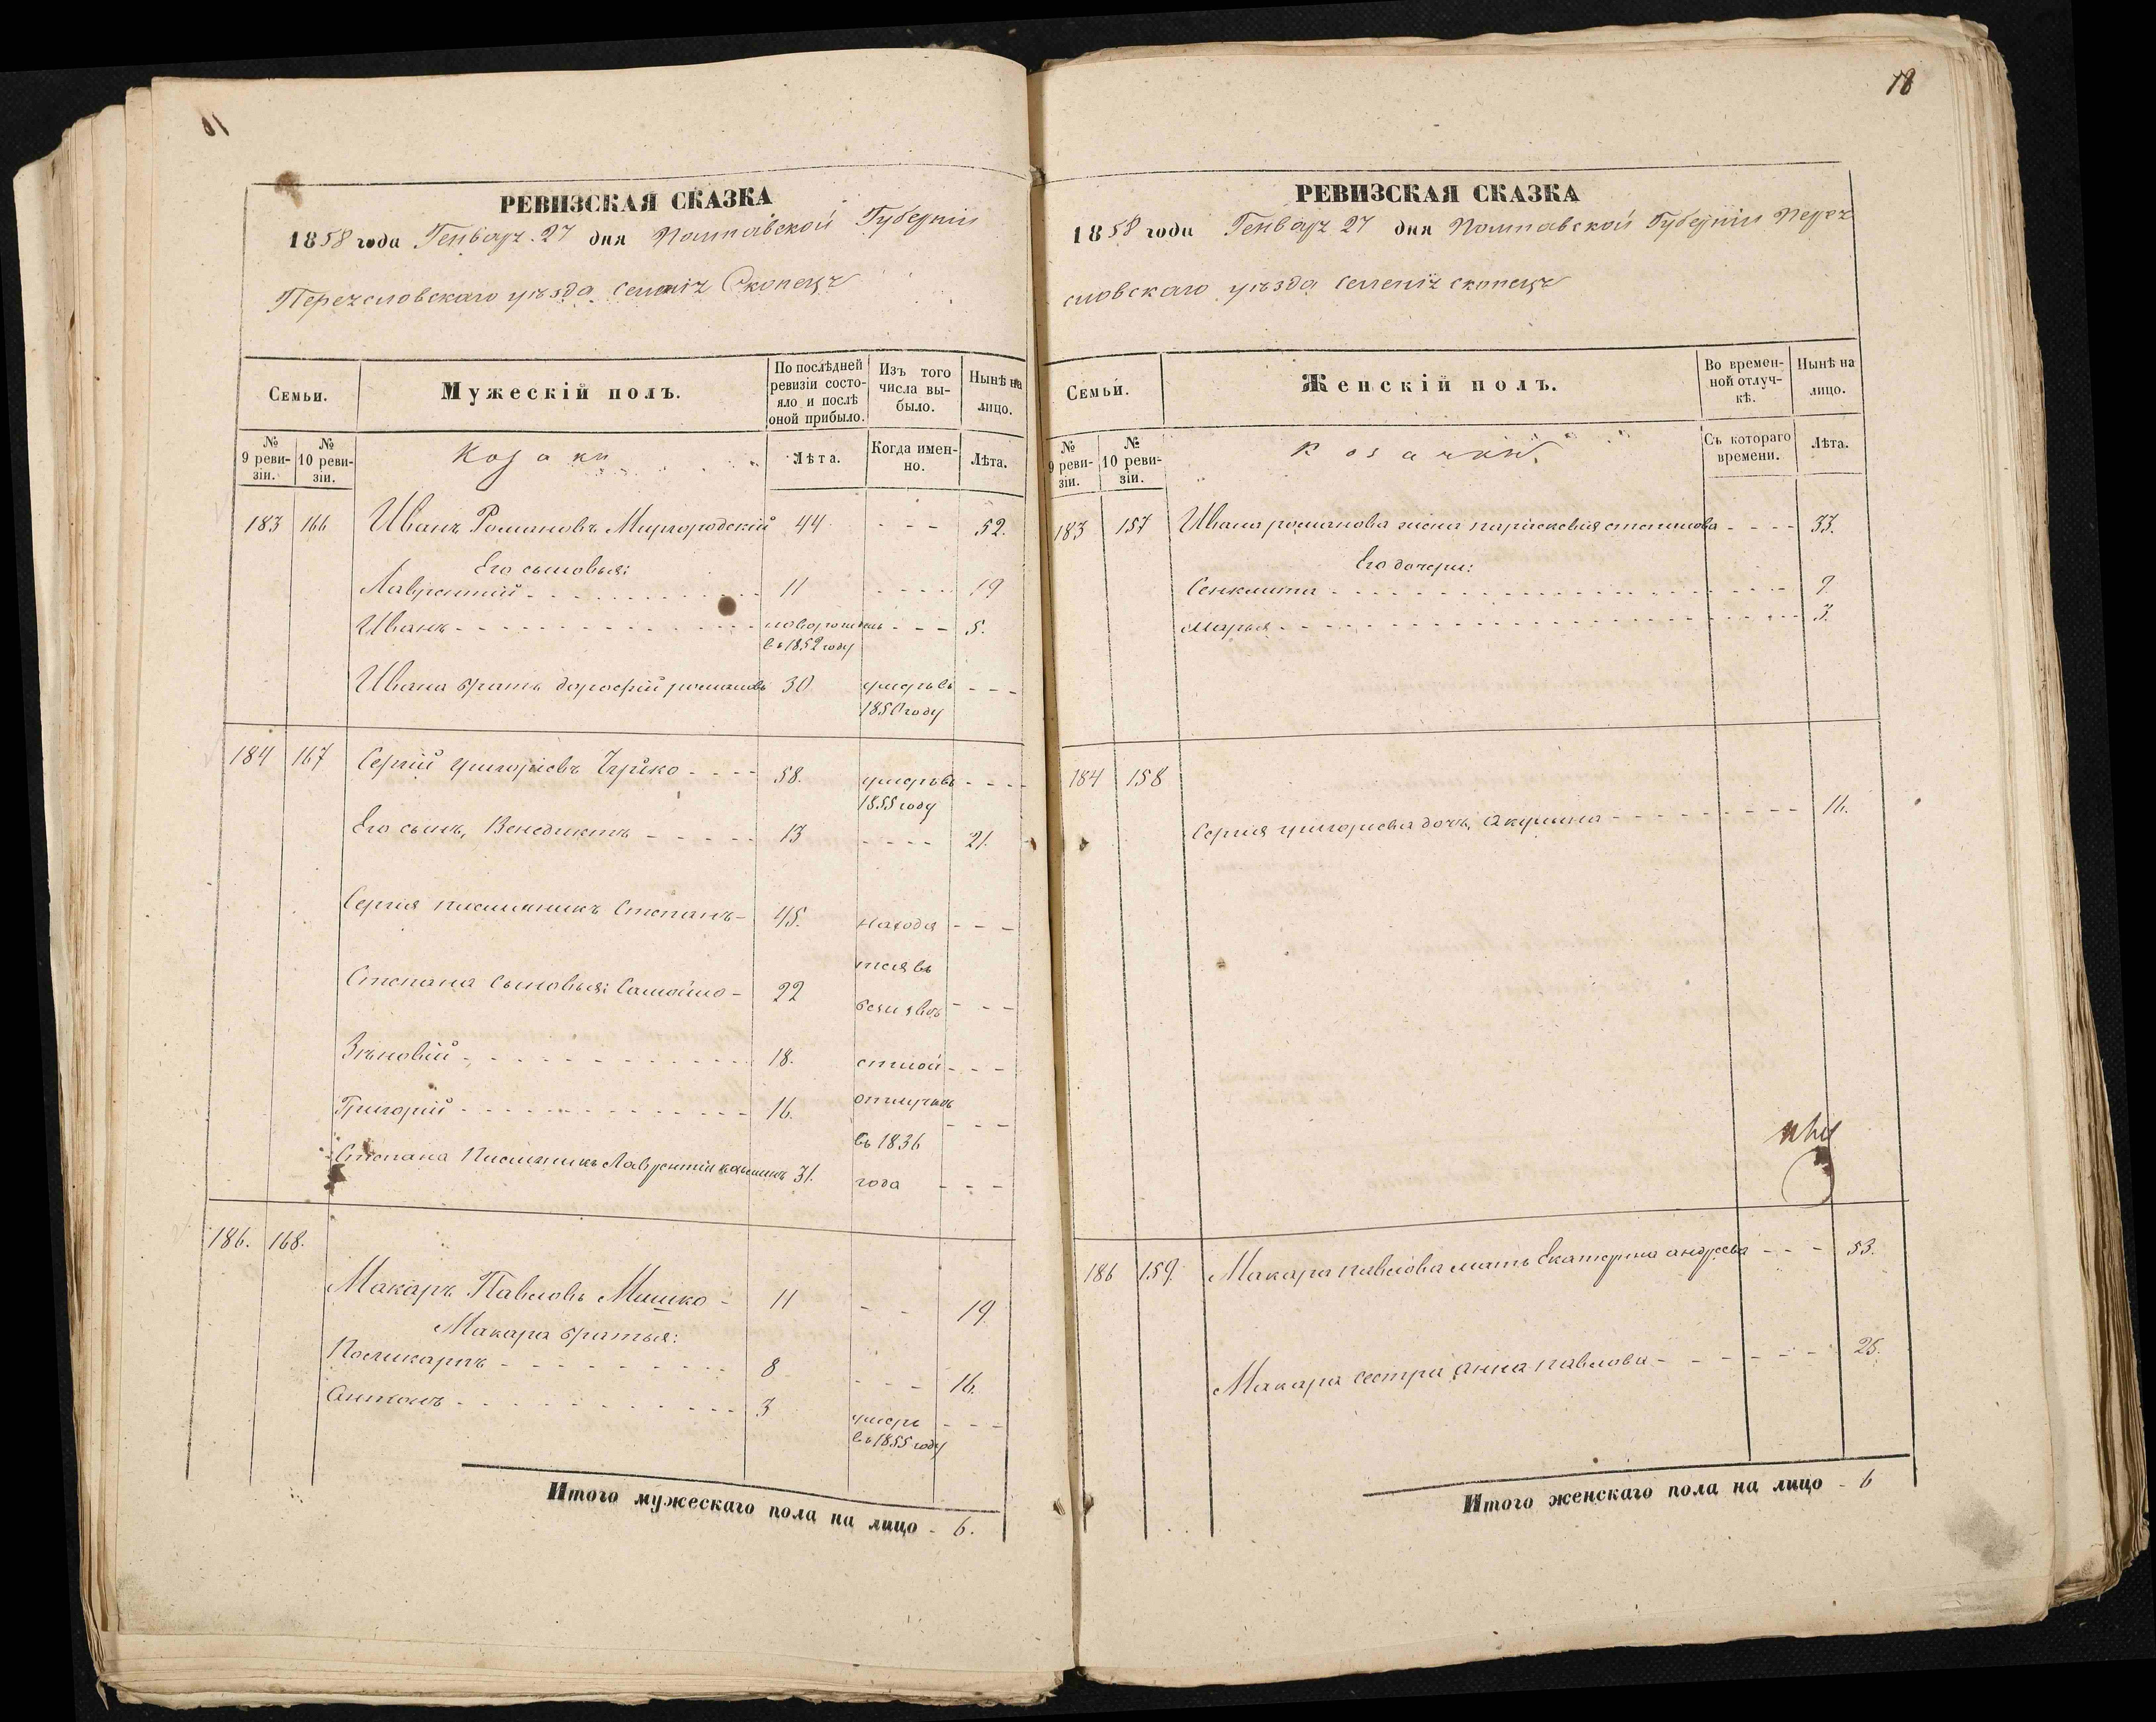 РЕВИЗСКАЯ СКАЗКА
1858 года Генваря 27 дня Полтавской Губерніи
Переяславскаго уѣзда селенія Скопець
Семьи. Мужескій полъ. По послѣдней ревизіи состояло и послѣ оной прибыло. Изъ того числа выбыло. Нынѣ на лицо.
№ 9 ревизіи. № 10 ревизіи. Козаки Лѣта. Когда именно. Лѣта.
183 166 Иванъ Романовъ Миргородскій 44 - - - 52.
Его сыновья:
Лаврентій - - - 11 - - - 19
Иванъ - - - новорожденъ - - - 5.
въ 1852 году
Ивана братъ дорофій романовъ 30 умеръ въ - - -
1850 году
184 167 Сергій григоріевъ - - - 58. умеръ въ - - -
1855 году
Его сынъ, Венедиктъ - - - 13 - - - 21.
Сергія племянникъ Степанъ - 45. находи - - -
тся въ
Степана сыновья: Самойло - 22 безъизвѣ - - -
Зѣновій - - - 18. стной - - -
Григорій - - - 16. отлучкѣ - - -
въ 1836
Степана племянникъ Лаврентій 31. года - - -
186. 168.
Макаръ Павловъ Мишко - 11 - - 19.
Макара братья:
Поликарпъ - - - 8 - - - 16.
Антонъ - - - 3 умеръ - - -
въ 1855 году
Итого мужескаго пола на лицо - 6.
18
РЕВИЗСКАЯ СКАЗКА
1858 года Генваря 27 дня Полтавской Губерніи Перея
славскаго уѣзда селенія скопець
Семьи. Женскій полъ. Во временной отлучкѣ. Нынѣ на лицо.
№ 9 ревизіи. № 10 ревизіи. Съ котораго времени. Лѣта.
183 157 Ивана романова жена параскевія степанова - - - 33.
Его дочери:
Сенклита - - - 9.
Марья - - - 3.
184 158
Сергія григорьева дочь, акулина - - - 16.
186 159. Макара павлова мать Екатерина андреева - - - 53.
Макара сестра анна павлова - - - 25.
Итого женскаго пола на лицо - 6